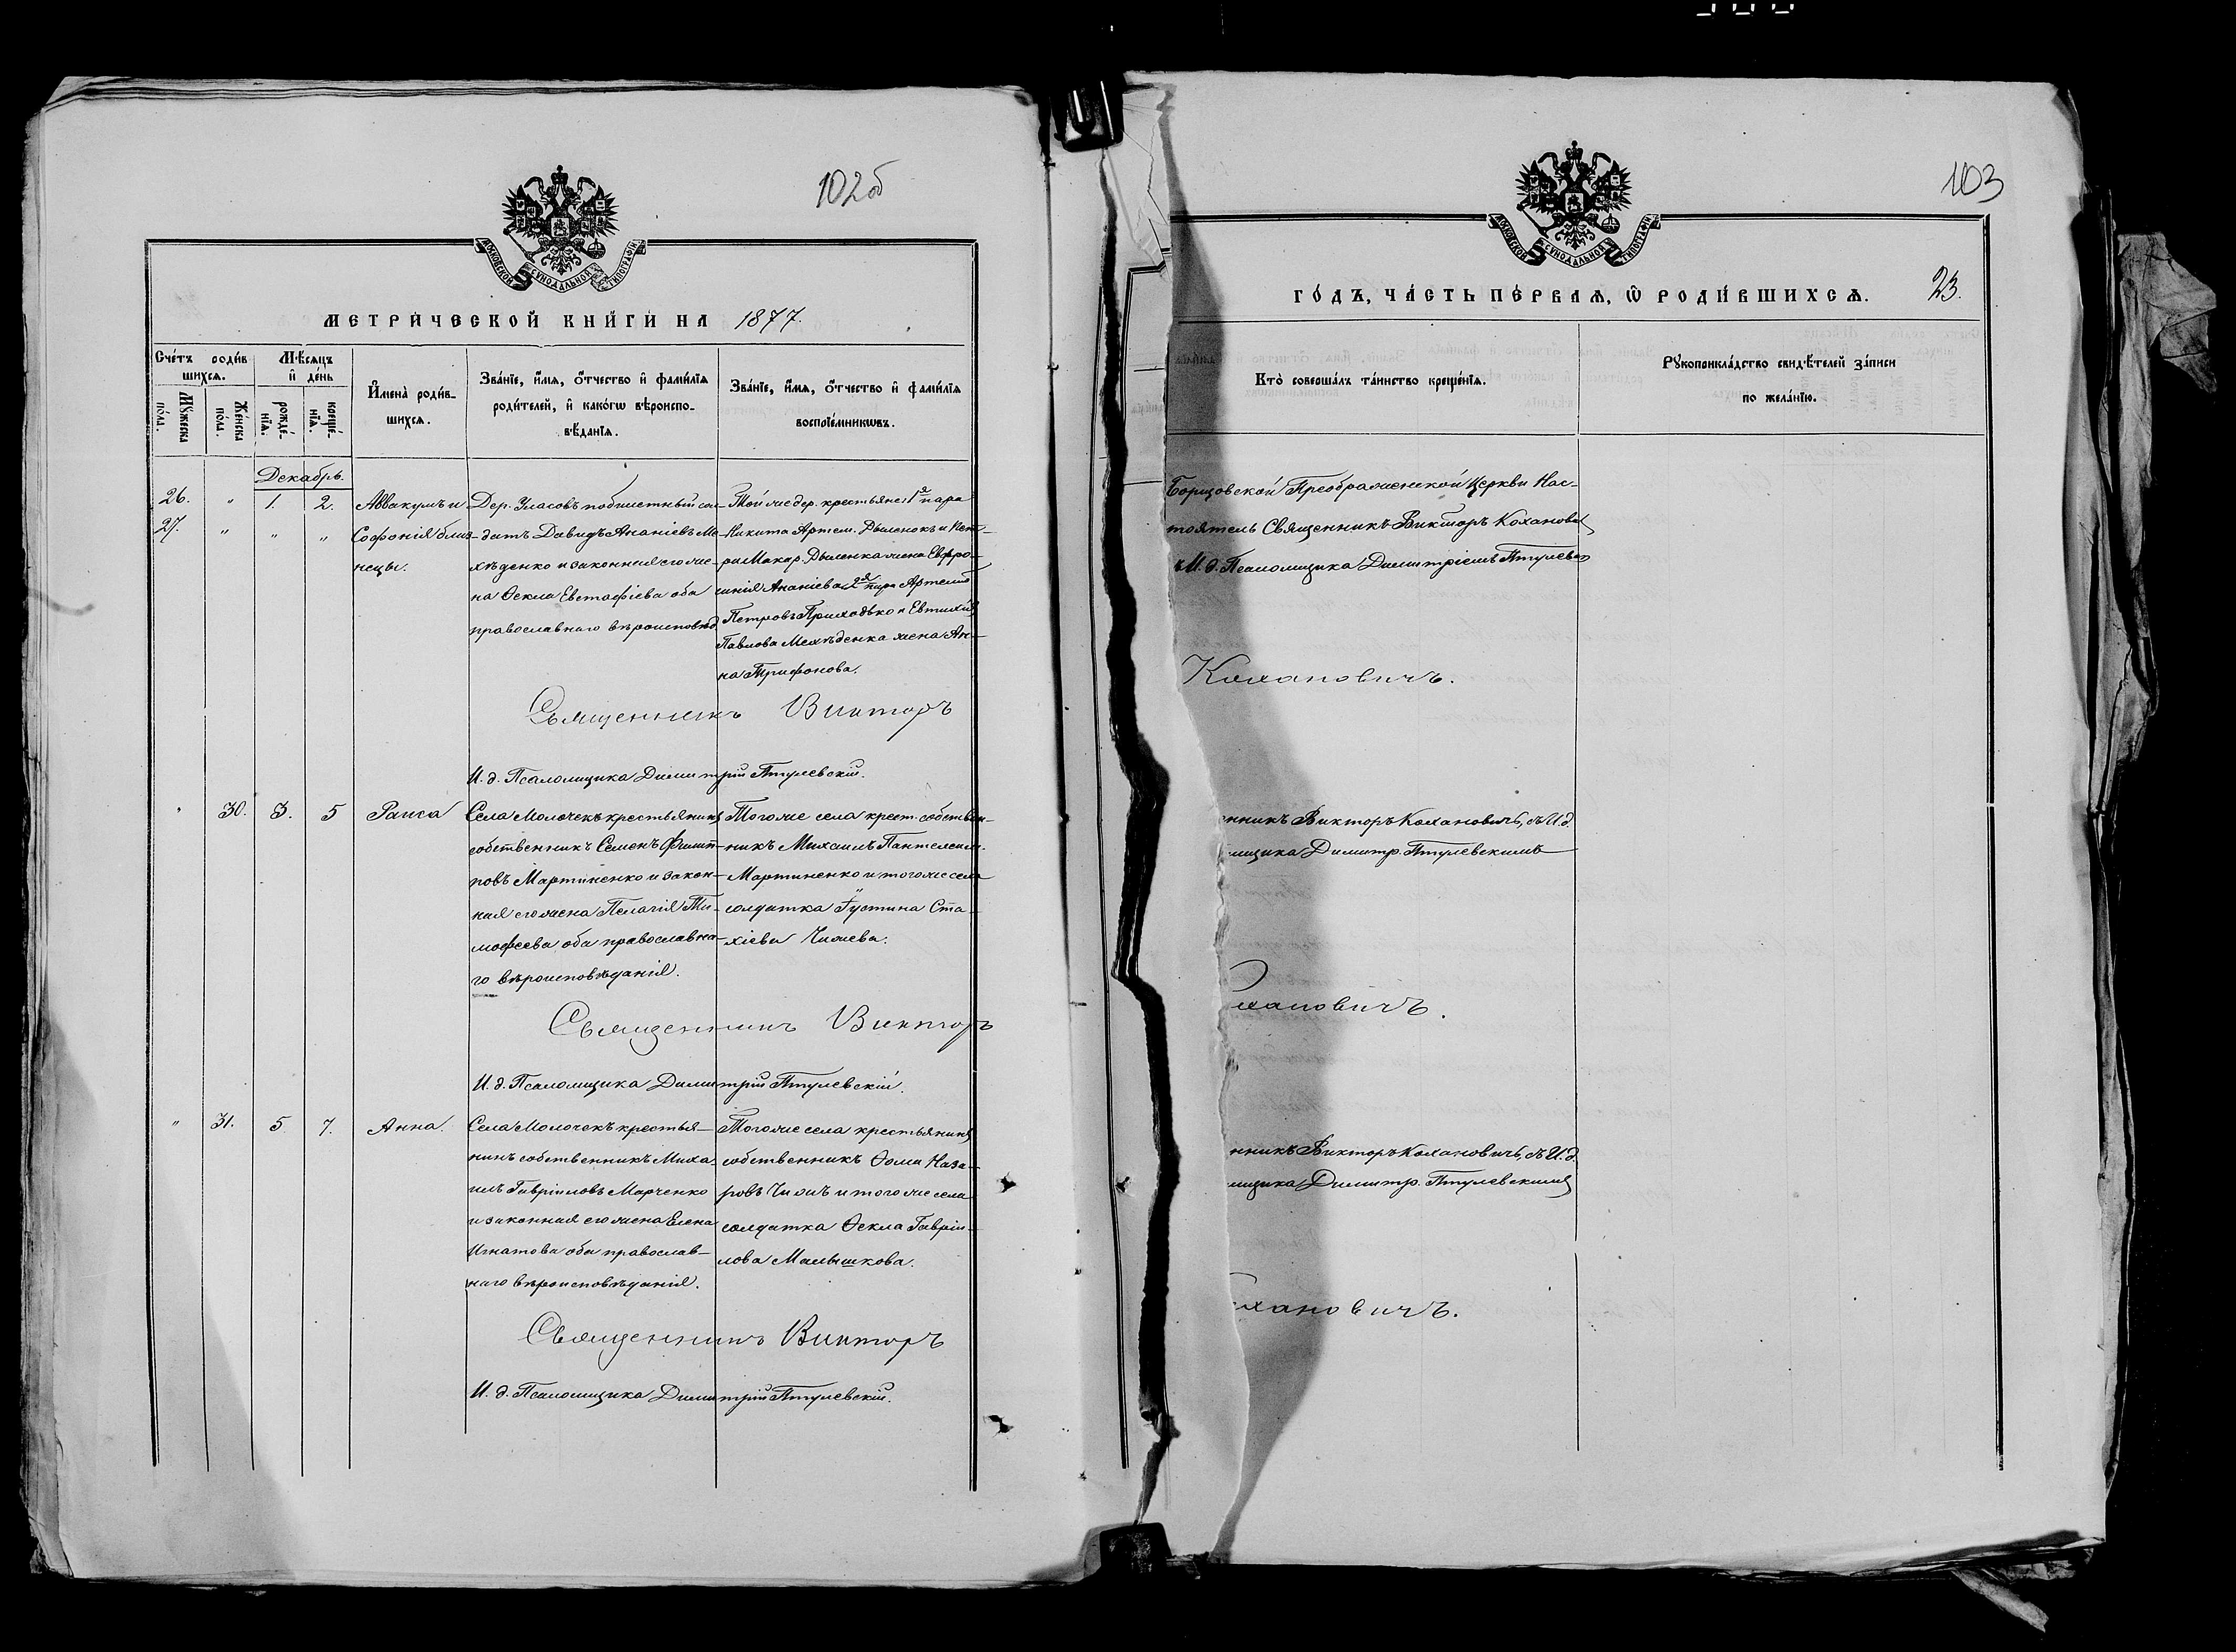 102об
МОСКОВСКОЙ СѴНОДАЛЬНОЙ ТИПОГРАФІИ
МЕТРИ́ЧЕСКОЙ КНИ́ГИ НА 1877.
Сче́тъ роди́в
шихсѧ.
Мѣ́сѧцъ
и҆ де́нь
Мꙋ́жеска
по́ла.
Же́нска
по́ла.
рожде́-
нїѧ.
креще́-
нїѧ.
И҆мена̀ роди́в-
шихсѧ.
Зва́нїе, и҆́мѧ, ѻ҆́тчество и҆ фамилїѧ
роди́телей, и҆ како́гѡ вѣроиспо-
вѣ́данїѧ.
Зва́нїе, и҆́мѧ, ѻ҆́тчество и҆ фамилїѧ
воспрїе́мникѡвъ.
Декабрь.
26. " 1. 2. Аввакумъ и
27. " " " Софонія близ-
нецы.
Дер. Уласовъ побилетный сол-
датъ Давидъ Ананіевъ Ме-
хѣденко и законная его же-
на Ѳекла Евстафіева оба
православнаго вѣроисповѣд
Той же дер. крестьяне: 1я пара
Никита Артем. Рыленокъ и Кет-
ра Макар. Рыленка жена Евфро-
синія Ананіева, 2я пара Артемій
Петровъ Приходько и Евтихія
Павлова Мехѣденка жена Ан-
на Трифонова.
Священникъ Викторъ
И. д. Псаломщика Димитрій Птулевскій.
" 30. 3. 5 Раиса
Села Молочекъ крестьянинъ
собственникъ Семенъ Филип-
повъ Мартиненко и закон-
ная его жена Пелагія Ти-
мофеева оба православна-
го вѣроисповѣданія.
Тогоже села крест. собствен-
никъ Михаилъ Пантелеим.
Мартиненко и тогоже села
солдатка Іустина Ста-
хіева Чижева.
Священникъ Викторъ
И. д. Псаломщика Димитрій Птулевскій.
" 31. 5. 7. Анна.
Села Молочекъ крестья-
нинъ собственникъ Миха-
илъ Гавріиловъ Марченко
и законная его жена Елена
Игнатова оба православ-
наго вѣроисповѣданія.
Тогоже села крестьянинъ
собственникъ Ѳома Наза-
ровъ Чижъ и тогоже села
солдатка Ѳекла Гавріи-
лова Малышкова.
Священникъ Викторъ
И. д. Псаломщика Димитрій Птулевскій.
103
МОСКОВСКОЙ СѴНОДАЛЬНОЙ ТИПОГРАФІИ
ГО́ДЪ, ЧА́СТЬ ПЕ́РВАѦ, Ѽ РОДИ́ВШИХСѦ. 23.
Кто̀ соверша́лъ та́инство креще́нїѧ.
Рꙋкоприкла́дство свидѣ́телей за́писи
по жела́нїю.
Борщовской Преображенской Церкви Нас-
тоятель Священникъ Викторъ Коханович
съ И. д. Псаломщика Димитріемъ Птулевск
Кохановичъ.
енникъ Викторъ Кохановичъ, съ И. д.
мщика Димитр. Птулевскимъ
хановичъ.
нникъ Викторъ Кохановичъ, съ И. д.
мщика Димитр. Птулевскимъ
хановичъ.